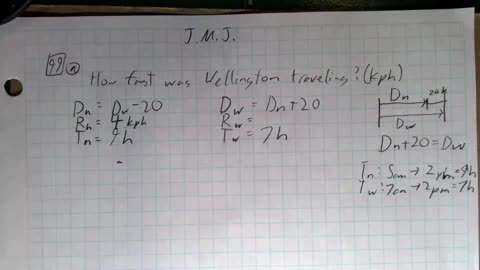 J.M.J.
99 a
How fast was Wellington traveling? (kph)
Dn = Dw-20
Rn = 4 kph
Tn = 9h
Dw = Dn+20
Rw =
Tw = 7h
Dn 20k
Dw
Dn+20=Dw
Tn: 5am → 2pm=9h
Tw: 7am → 2pm=7h